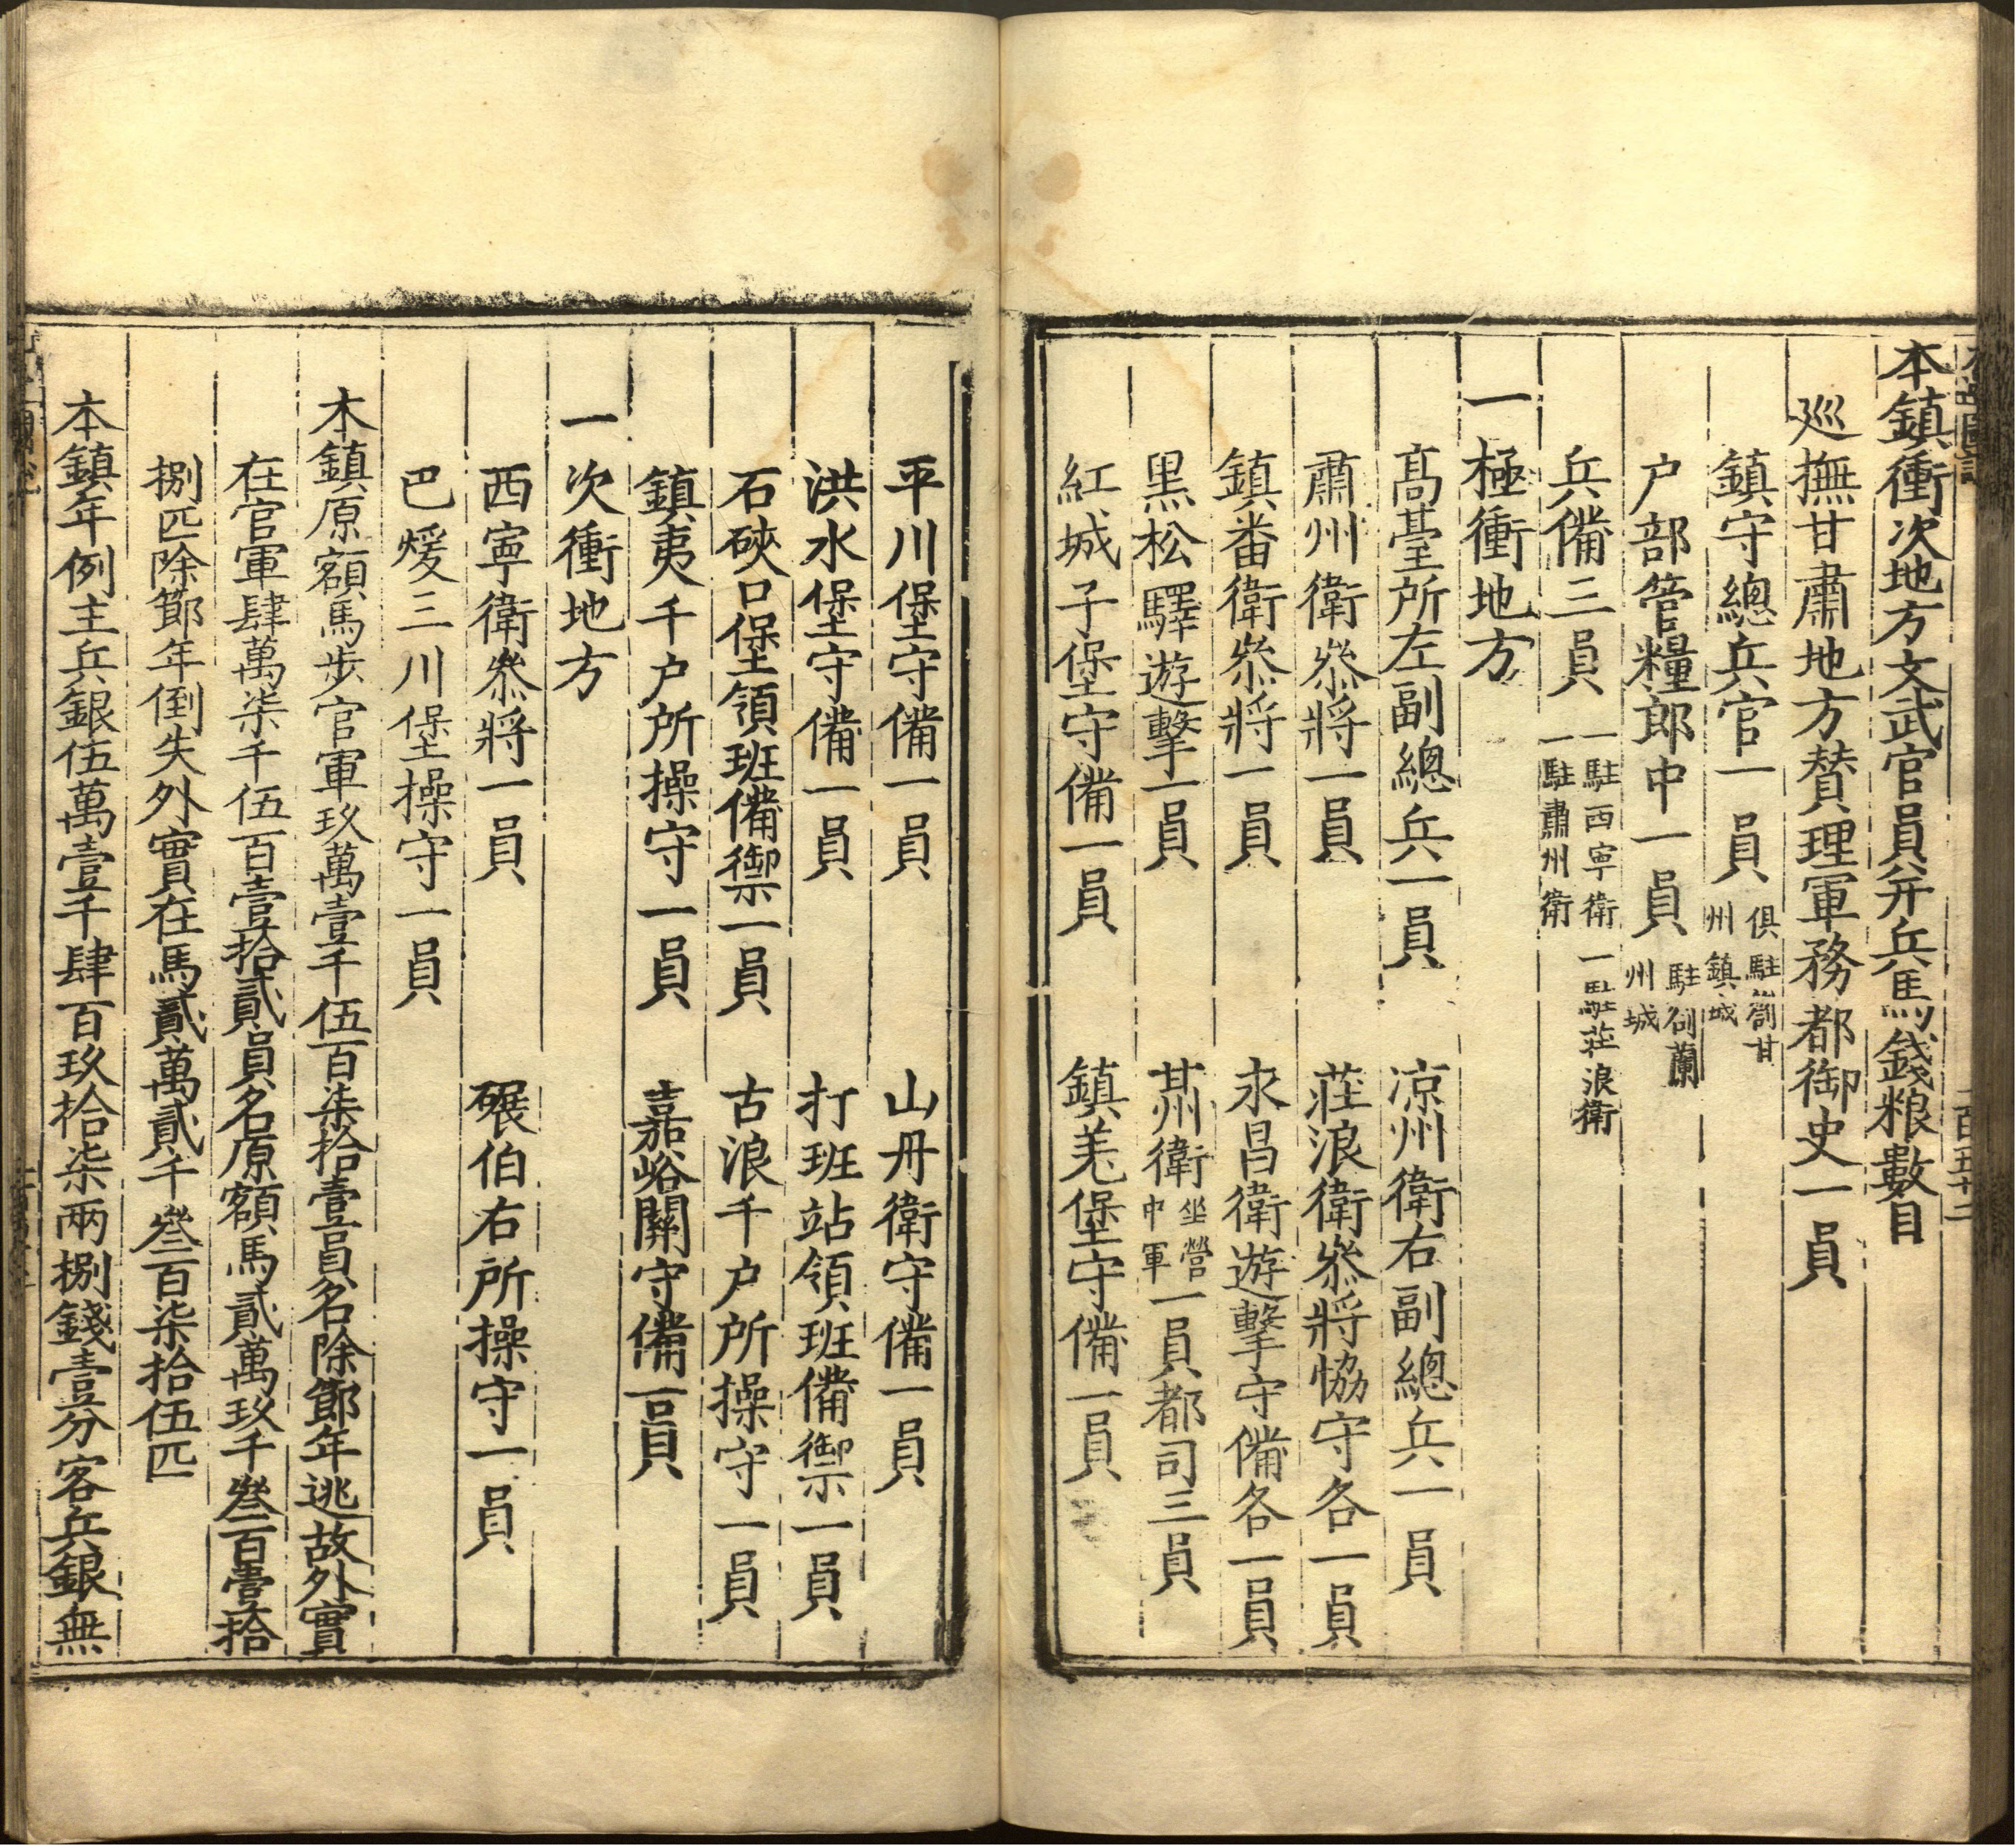 本鎮衝次地方文武官員并兵馬錢粮數目
廵撫甘肅地方賛理軍務都御史一員
鎮守總兵官一員 俱駐劄甘州鎮城
户部管糧郎中一員 駐劄蘭州城
兵備三員 一駐西寧衛 一駐莊浪衛 一駐肅州衛
一極衝地方
髙臺所左副總兵一員 凉州衛右副總兵一員
肅州衛叅將一員 莊浪衛叅將恊守各一員
鎮畨衛叅將一員 永昌衛遊擊守備各一員
黒松驛遊擊一員 甘州衛坐營中軍一員都司三員
紅城子堡守備一員 鎮羌堡守備一員
平川堡守備一員 山丹衛守備一員
洪水堡守備一員 打班站領班備禦一員
石硤口堡領班備禦一員 古浪千户所操守一員
鎮夷千户所操守一員 嘉峪關守備一員
一次衝地方
西寧衛叅將一員 碾伯右所操守一員
巴煖三川堡操守一員
本鎮原額馬步官軍玖萬壹千伍百柒拾壹員名除節年逃故外實
在官軍肆萬柒千伍百壹拾貳員名原額馬貳萬玖千叁百壹拾
捌匹除節年倒失外實在馬貳萬貳千叁百柒拾伍匹
本鎮年例主兵銀伍萬壹千肆百玖拾柒兩捌錢壹分客兵銀無